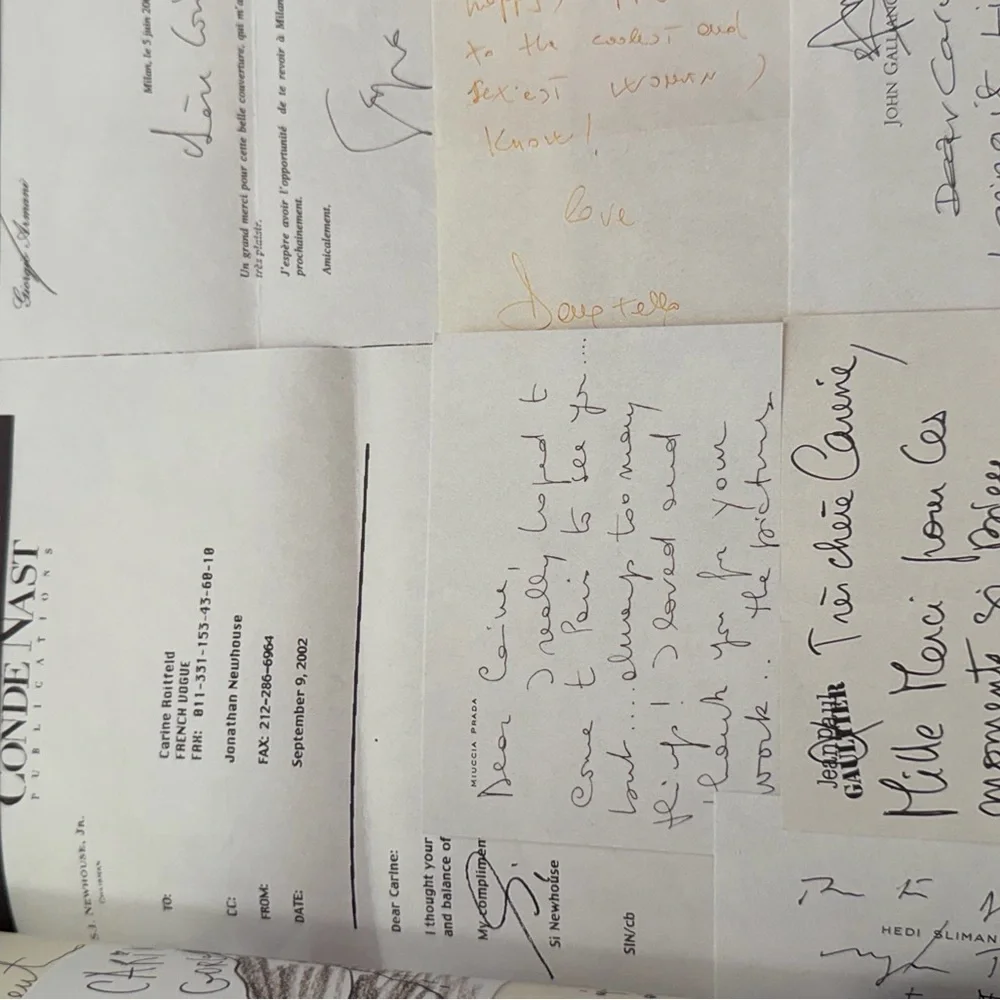 Giorgio Armani
Milan, le 5 juin 200
Un grand merci pour cette belle couverture, qui m'a
très plaisir.
J'espère avoir l'opportunité de te revoir à Milan
prochainement.
Amicalement,
to the coolest and
sexiest woman I
know!
love
Donatella
JOHN GALLIANO
Dear Cari
CONDE NAST
PUBLICATIONS
S.I. NEWHOUSE, JR.
CHAIRMAN
TO: Carine Roitfeld
FRENCH VOGUE
FAX: 011-331-153-43-60-10
CC: Jonathan Newhouse
FROM: FAX: 212-286-6964
DATE: September 9, 2002
Dear Carine:
I thought your
and balance of
My complimen
Si Newhouse
SIN/cb
MIUCCIA PRADA
Dear Carine,
I really hoped t
come t Paris to see you....
but... always too many
things! I loved and
thank you for your
work.. the pictures
Jean Paul
GAULTIER
Très chère Carine,
Mille Merci pour ces
moments si
HEDI SLIMAN